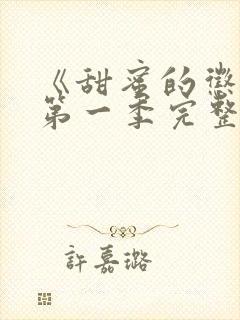 《甜蜜的懲
第一季完整
許嘉璐